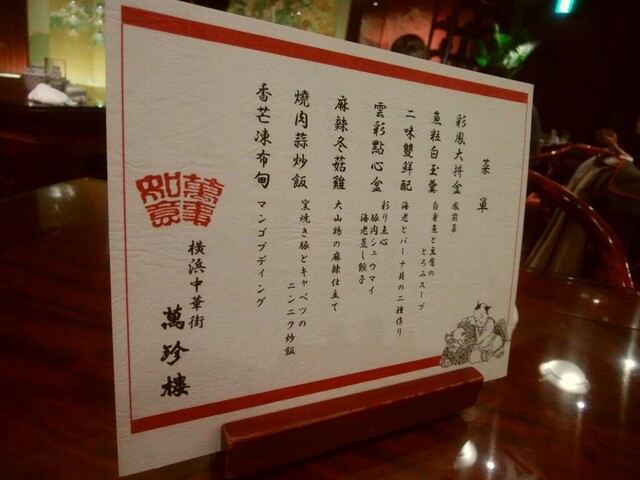 菜單
彩鳳大拼盒 鳳前菜
魚粒白玉羹 白身魚と豆腐の
とろみスープ
二味雙鮮配 海老とパーナ貝の二種作り
雲彩點心盒 彩り点心
豚肉シュウマイ
海老蒸し餃子
麻辣冬菇雞 大山鶏の麻辣仕立て
燒肉蒜炒飯 窯焼き豚とキャベツの
ニンニク炒飯
香芒凍布甸 マンゴプディング
萬事如意
橫浜中華街
萬珍樓